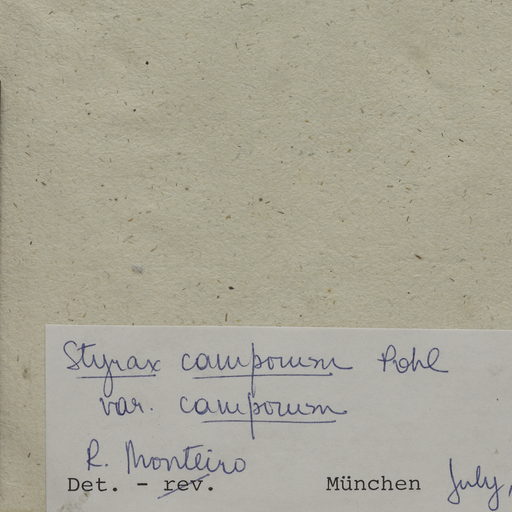 Styrax camporum Pohl
var. camporum
R. Monteiro
Det. - rev. München July,